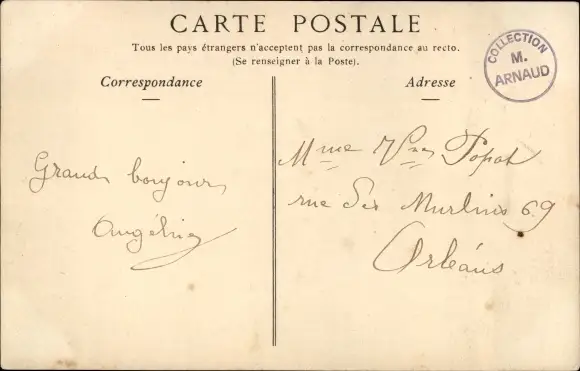 CARTE POSTALE
Tous les pays étrangers n'acceptent pas la correspondance au recto.
(Se renseigner à la Poste).
COLLECTION
M.
ARNAUD
Correspondance
Adresse
Grands bonjours
Angélina
Mme Vve Popot
rue des Murlins 69
Orléans